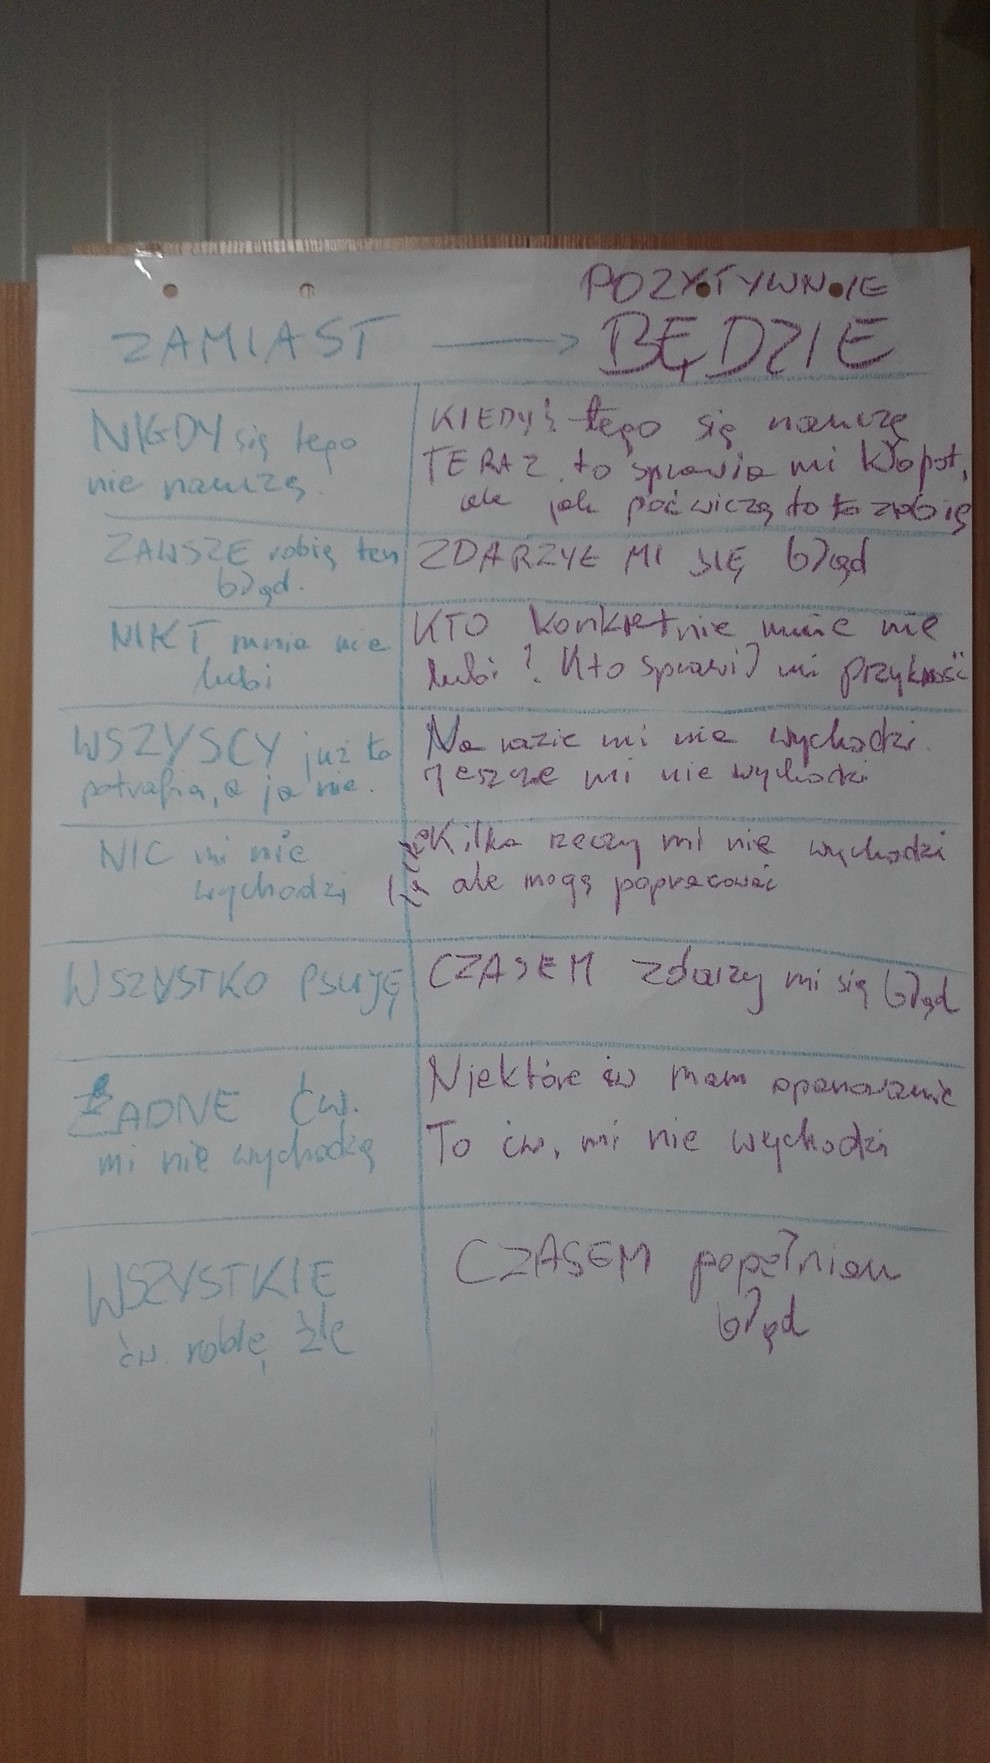 POZYTYWNIE
ZAMIAST → BĘDZIE
NIGDY się tego
nie nauczę.
KIEDYŚ tego się nauczę
TERAZ to sprawia mi kłopot,
ale jak poćwiczę to to zrobię
ZAWSZE robię ten
błąd.
ZDARZYŁ MI SIĘ błąd
NIKT mnie nie
lubi
KTO konkretnie mnie nie
lubi? Kto sprawił mi przykrość
WSZYSCY już to
potrafią, a ja nie.
Na razie mi nie wychodzi.
Jeszcze mi nie wychodzi
NIC mi nie
wychodzi
Kilka rzeczy mi nie wychodzi
ale mogę popracować
WSZYSTKO PSUJĘ
CZASEM zdarzy mi się błąd
ŻADNE ĆW.
mi nie wychodzą
Niektóre ćw mam opanowane
To ćw. mi nie wychodzi
WSZYSTKIE
ćw. robię źle
CZASEM popełniam
błąd